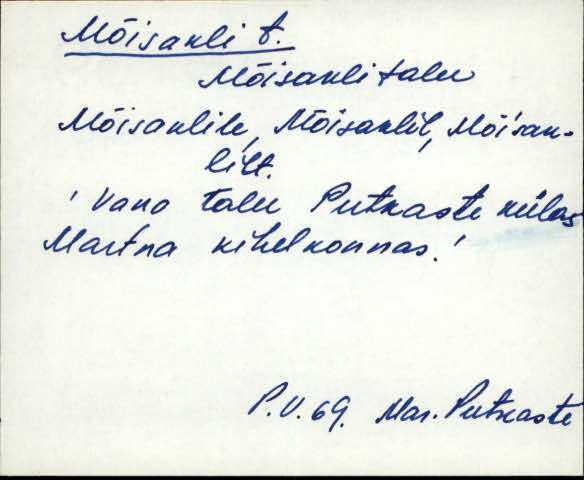 Mõisakli t.
Mõisakli talu
Mõisaklile, Mõisaklil, Mõisak-
lilt.
'Vana talu Putkaste külas
Martna kihelkonnas.'
P.V. 69. Mar. Putkaste